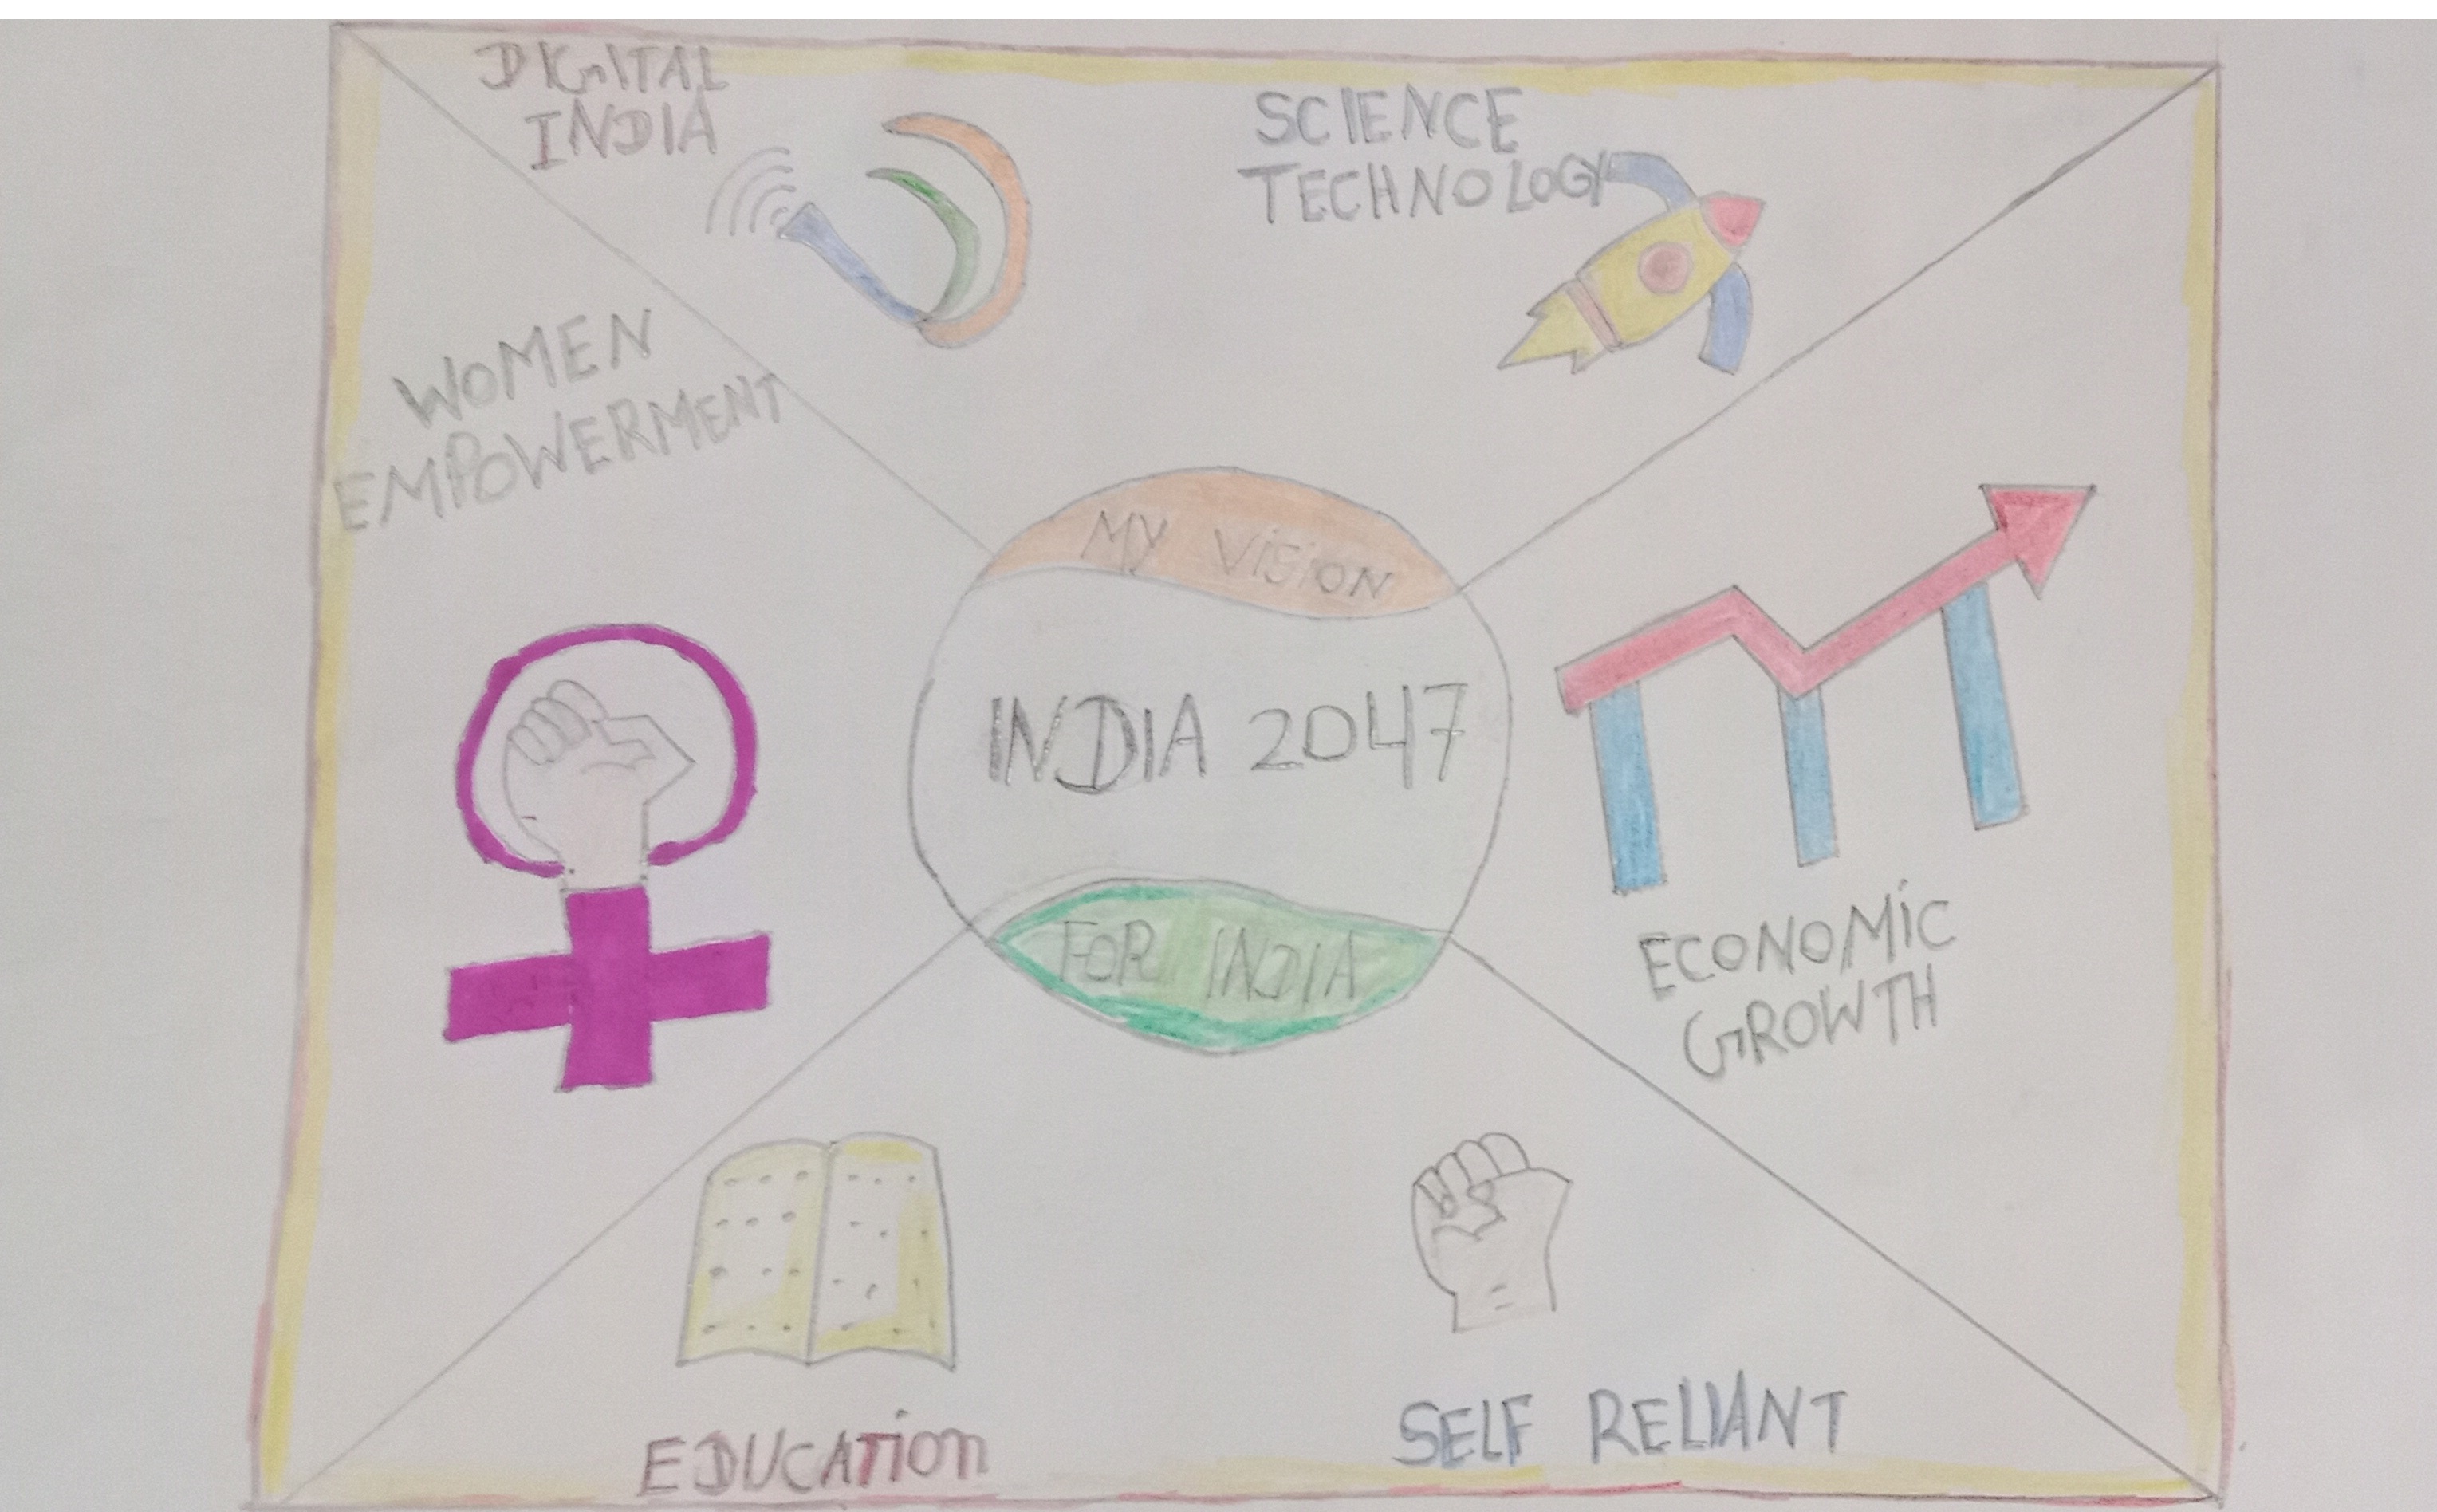 DIGITAL
INDIA
SCIENCE
TECHNOLOGY
WOMEN
EMPOWERMENT
MY VISION
INDIA 2047
FOR INDIA
ECONOMIC
GROWTH
EDUCATION
SELF RELIANT